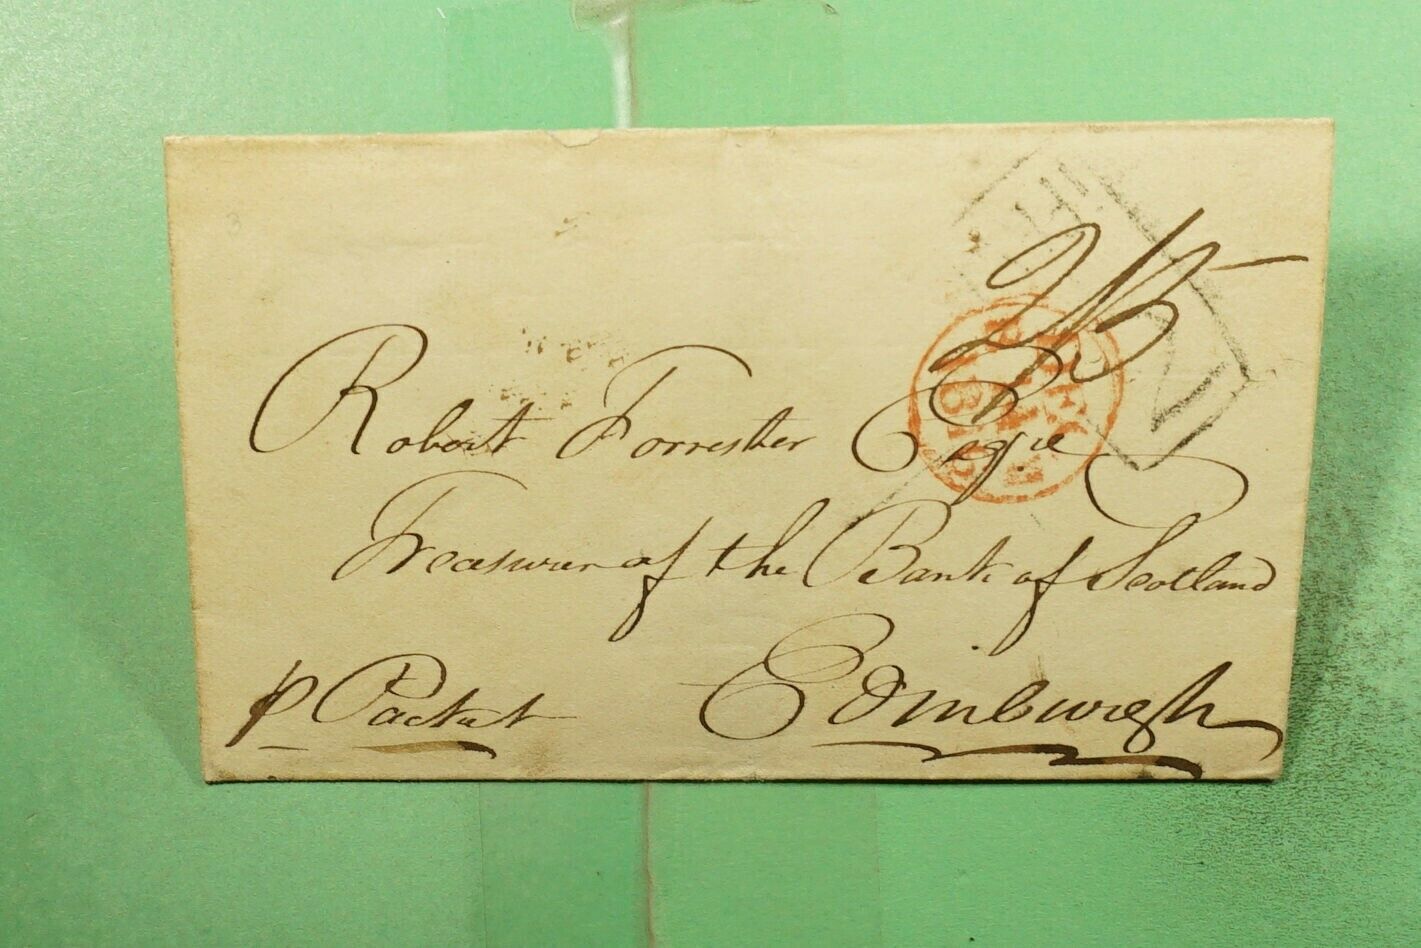 2/5
Robert Forrester Esqre
Treasurer of the Bank of Scotland
p Packet
Edinburgh